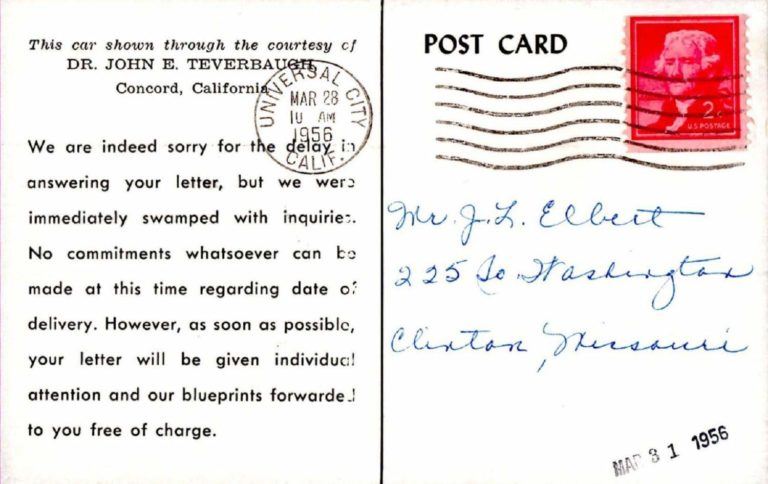 This car shown through the courtesy of
DR. JOHN E. TEVERBAUGH
Concord, California
We are indeed sorry for the delay in
answering your letter, but we were
immediately swamped with inquiries.
No commitments whatsoever can be
made at this time regarding date of
delivery. However, as soon as possible,
your letter will be given individual
attention and our blueprints forwarded
to you free of charge.
UNIVERSAL CITY
MAR 28
10 AM
1956
CALIF.
POST CARD
2c
U.S. POSTAGE
Mr. J. L. Elbert
225 So. Washington
Clinton, Missouri
MAR 31 1956